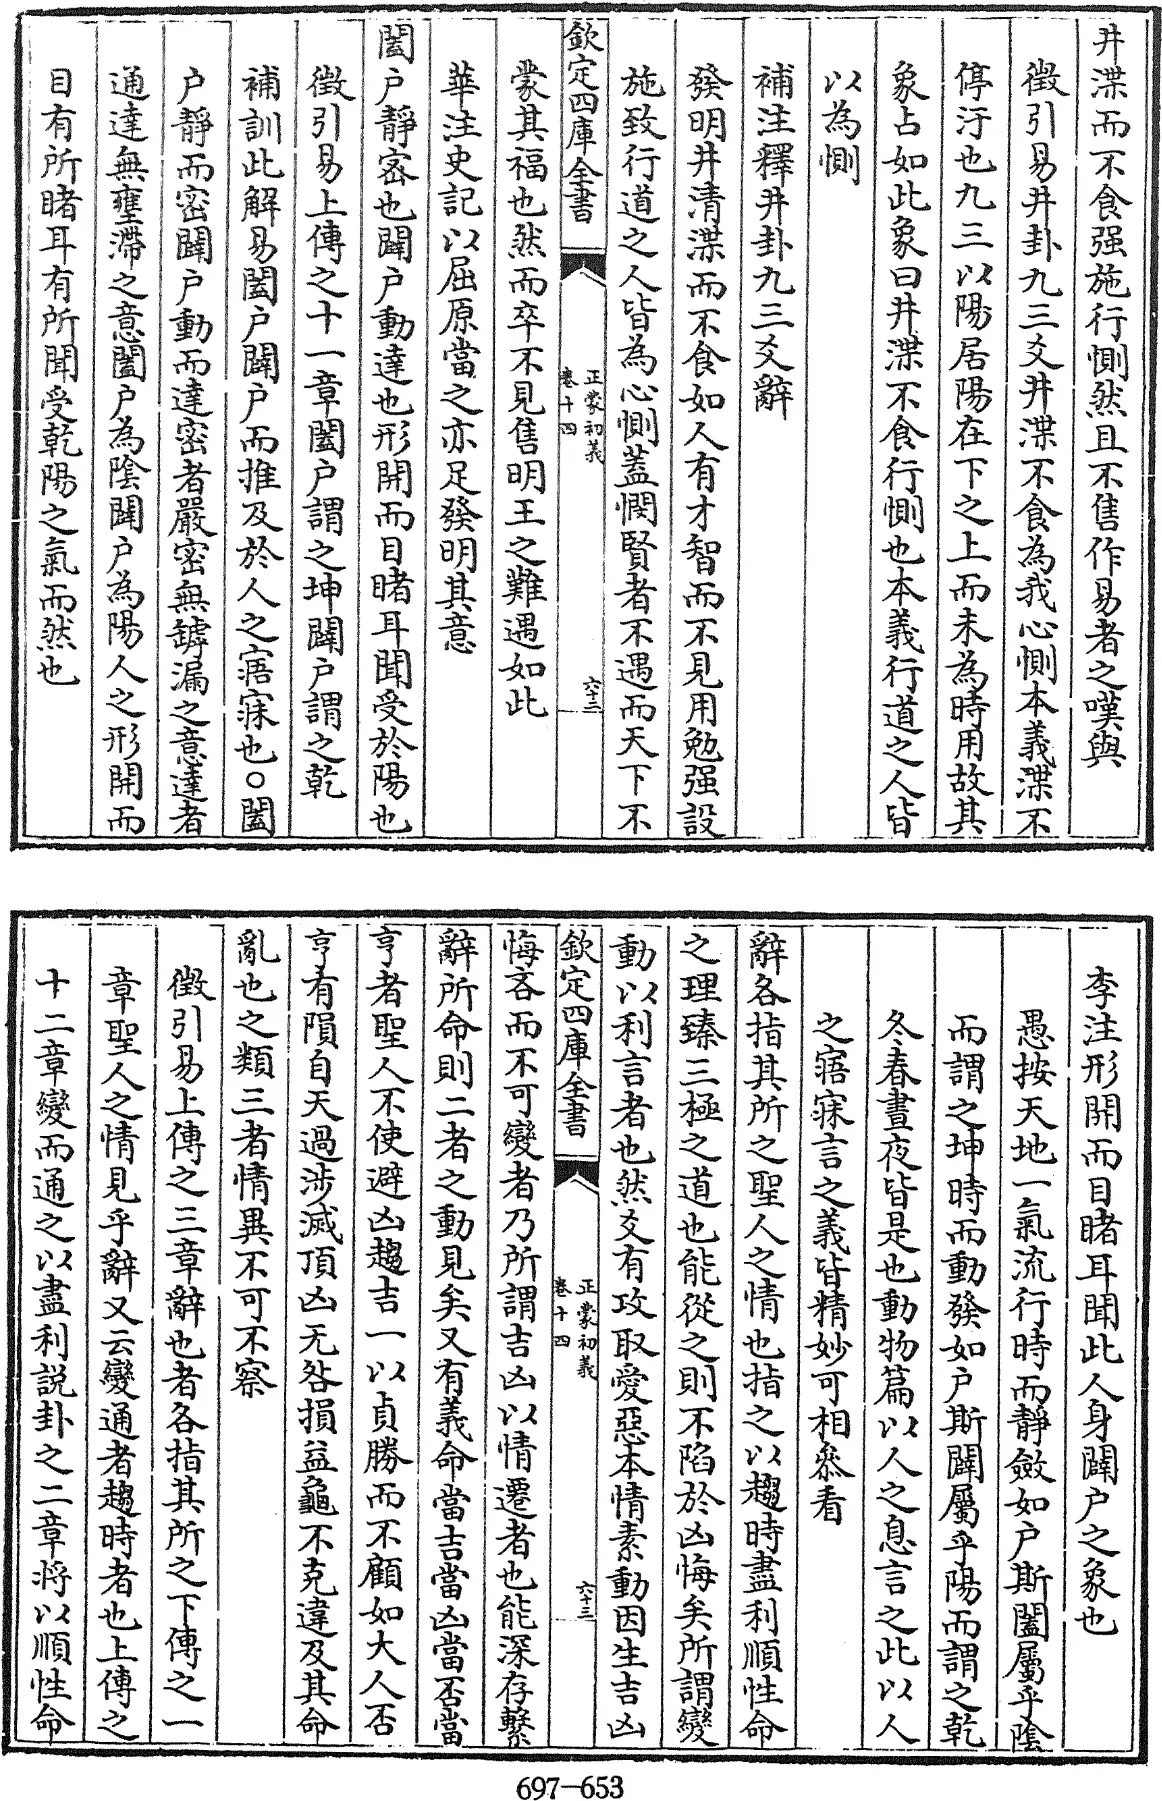 井渫而不食强施行惻然且不售作易者之嘆與
徵引易井卦九三爻井渫不食為我心惻本義渫不
停汙也九三以陽居陽在下之上而未為時用故其
象占如此象曰井渫不食行惻也本義行道之人皆
以為惻
補注釋井卦九三爻辭
發明井清渫而不食如人有才智而不見用勉强設
施致行道之人皆為心惻蓋憫賢者不遇而天下不
欽定四庫全書
正蒙初義
卷十四
六十三
蒙其福也然而卒不見售明王之難遇如此
華注史記以屈原當之亦足發明其意
闔户靜密也闢户動達也形開而目睹耳聞受於陽也
徵引易上傳之十一章闔户謂之坤闢户謂之乾
補訓此解易闔户闢户而推及於人之寤寐也○闔
户靜而密闢户動而達密者嚴密無罅漏之意達者
通達無壅滯之意闔户為陰闢户為陽人之形開而
目有所睹耳有所聞受乾陽之氣而然也
李注形開而目睹耳聞此人身闢户之象也
愚按天地一氣流行時而靜斂如户斯闔屬乎陰
而謂之坤時而動發如户斯闢屬乎陽而謂之乾
冬春晝夜皆是也動物篇以人之息言之此以人
之寤寐言之義皆精妙可相叅看
辭各指其所之聖人之情也指之以趨時盡利順性命
之理臻三極之道也能從之則不陷於凶悔矣所謂變
動以利言者也然爻有攻取愛惡本情素動因生吉凶
欽定四庫全書
正蒙初義
卷十四
六十三
悔吝而不可變者乃所謂吉凶以情遷者也能深存繫
辭所命則二者之動見矣又有義命當吉當凶當否當
亨者聖人不使避凶趨吉一以貞勝而不顧如大人否
亨有隕自天過涉滅頂凶无咎損益龜不克違及其命
亂也之類三者情異不可不察
徵引易上傳之三章辭也者各指其所之下傳之一
章聖人之情見乎辭又云變通者趨時者也上傳之
十二章變而通之以盡利説卦之二章將以順性命
697—653